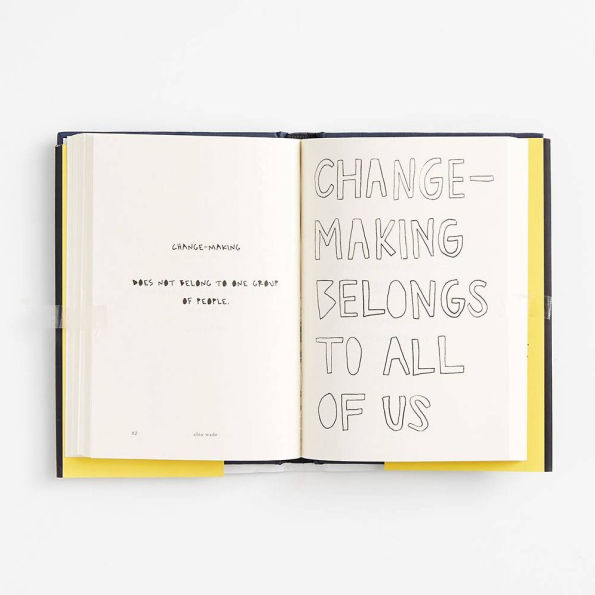 CHANGE-MAKING
DOES NOT BELONG TO ONE GROUP
OF PEOPLE.
82
cleo wade
CHANGE-
MAKING
BELONGS
TO ALL
OF US